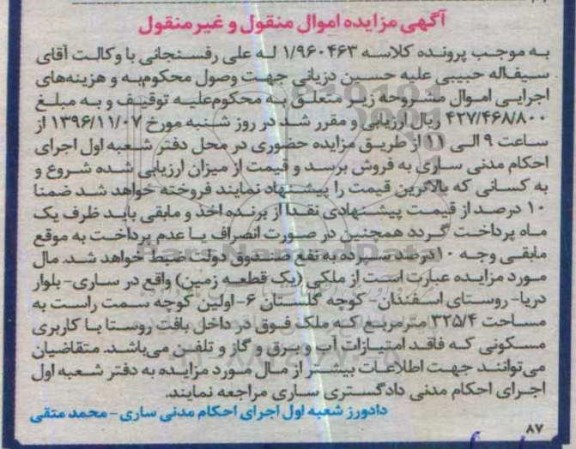 آگهی مزایده اموال منقول و غیر منقول
به موجب پرونده کلاسه ۱/۹۶۰۴۶۳ له علی رفسنجانی با وکالت آقای
سیف‌اله حبیبی علیه حسین دزیانی جهت وصول محکوم‌به و هزینه‌های
اجرایی اموال مشروحه زیر متعلق به محکوم‌علیه توقیف و به مبلغ
۴۲۷/۴۶۸/۸۰۰ ریال ارزیابی و مقرر شد در روز شنبه مورخ ۱۳۹۶/۱۱/۰۷ از
ساعت ۹ الی ۱۱ از طریق مزایده حضوری در محل دفتر شعبه اول اجرای
احکام مدنی ساری به فروش برسد و قیمت از میزان ارزیابی شده شروع و
به کسانی که بالاترین قیمت را پیشنهاد نمایند فروخته خواهد شد ضمنا
۱۰ درصد از قیمت پیشنهادی نقدا از برنده اخذ و مابقی باید ظرف یک
ماه پرداخت گردد همچنین در صورت انصراف یا عدم پرداخت به موقع
مابقی وجه ۱۰ درصد سپرده به نفع صندوق دولت ضبط خواهد شد. مال
مورد مزایده عبارت است از ملکی (یک قطعه زمین) واقع در ساری- بلوار
دریا- روستای اسفندان- کوچه گلستان ۶- اولین کوچه سمت راست به
مساحت ۳۲۵/۴ مترمربع که ملک فوق در داخل بافت روستا با کاربری
مسکونی که فاقد امتیازات آب و برق و گاز و تلفن می‌باشد. متقاضیان
می‌توانند جهت اطلاعات بیشتر از مال مورد مزایده به دفتر شعبه اول
اجرای احکام مدنی دادگستری ساری مراجعه نمایند.
دادورز شعبه اول اجرای احکام مدنی ساری - محمد متقی
۸۷